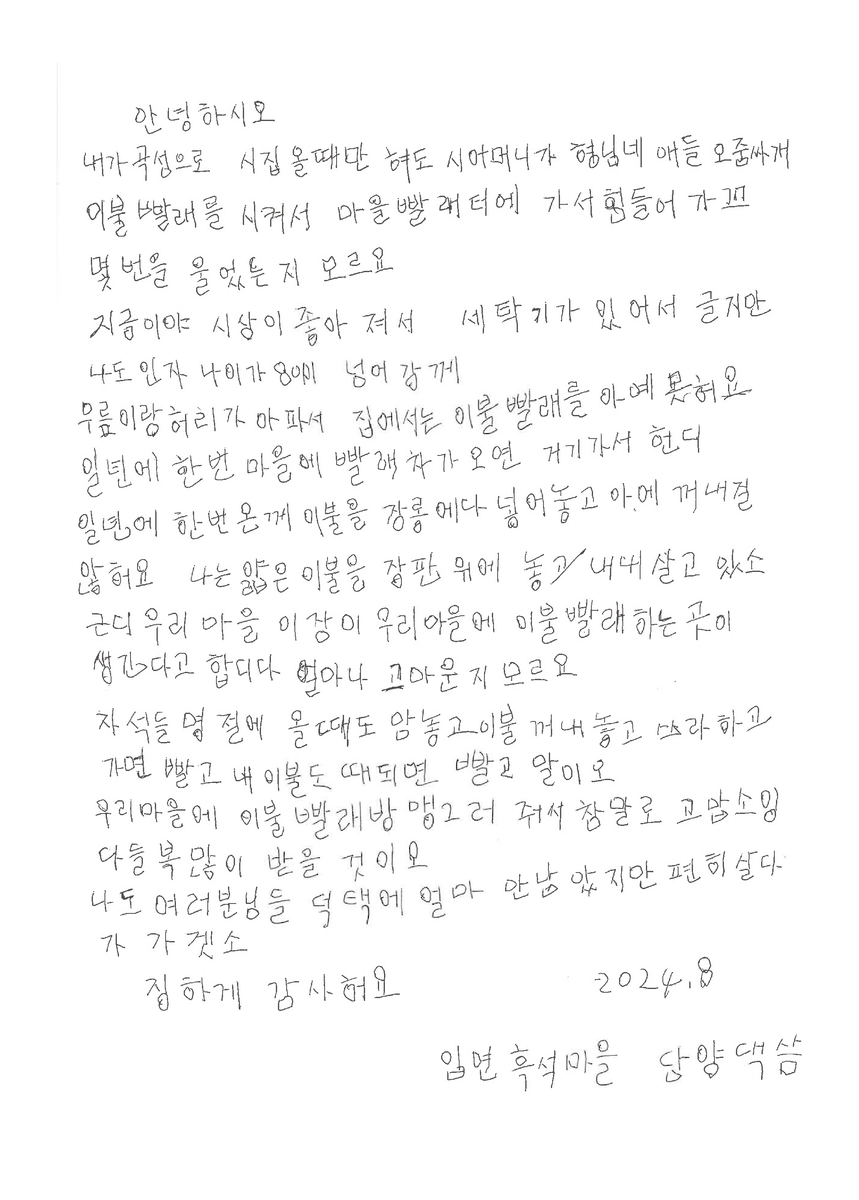 안녕하시오
내가 곡성으로 시집 올때만 혀도 시어머니가 형님네 애들 오줌싸게
이불 빨래를 시켜서 마을빨래터에 가서 힘들어 가꼬
몇번을 울었는지 모르요
지금이야 시상이 좋아 져서 세탁기가 있어서 글지만
나도 인자 나이가 80이 넘어 감께
무릎이랑 허리가 아파서 집에서는 이불빨래를 아예 못혀요
일년에 한번 마을에 빨래차가 오연 거기가서 헌디
일년에 한번 온께 이불을 장롱에다 넣어놓고 아에 꺼내질
않혀요 나는 얇은 이불을 잡판 위에 놓고 내내 살고 있소
근디 우리 마을 이장이 우리마을에 이불빨래하는 곳이
생긴다고 합디다 얼마나 고마운지 모르요
자석들 명절에 올때도 맘놓고 이불 꺼내 놓고 쓰라 하고
가면 빨고 내 이불도 때되면 빨고 말이오
우리마을에 이불 빨래방 맹그러 줘서 참말로 고맙소잉
다들 복 많이 받을 것이오
나도 여러분님들 덕택에 얼마 안남았지만 편히살다
가 가겟소
집하게 감사혀요 2024.8
입면 흑석마을 담양댁 씀